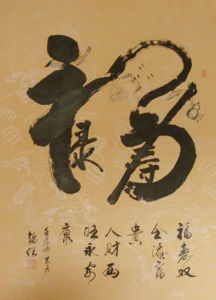 福禄寿
福寿双
全添富
贵
人财两
旺永安
康